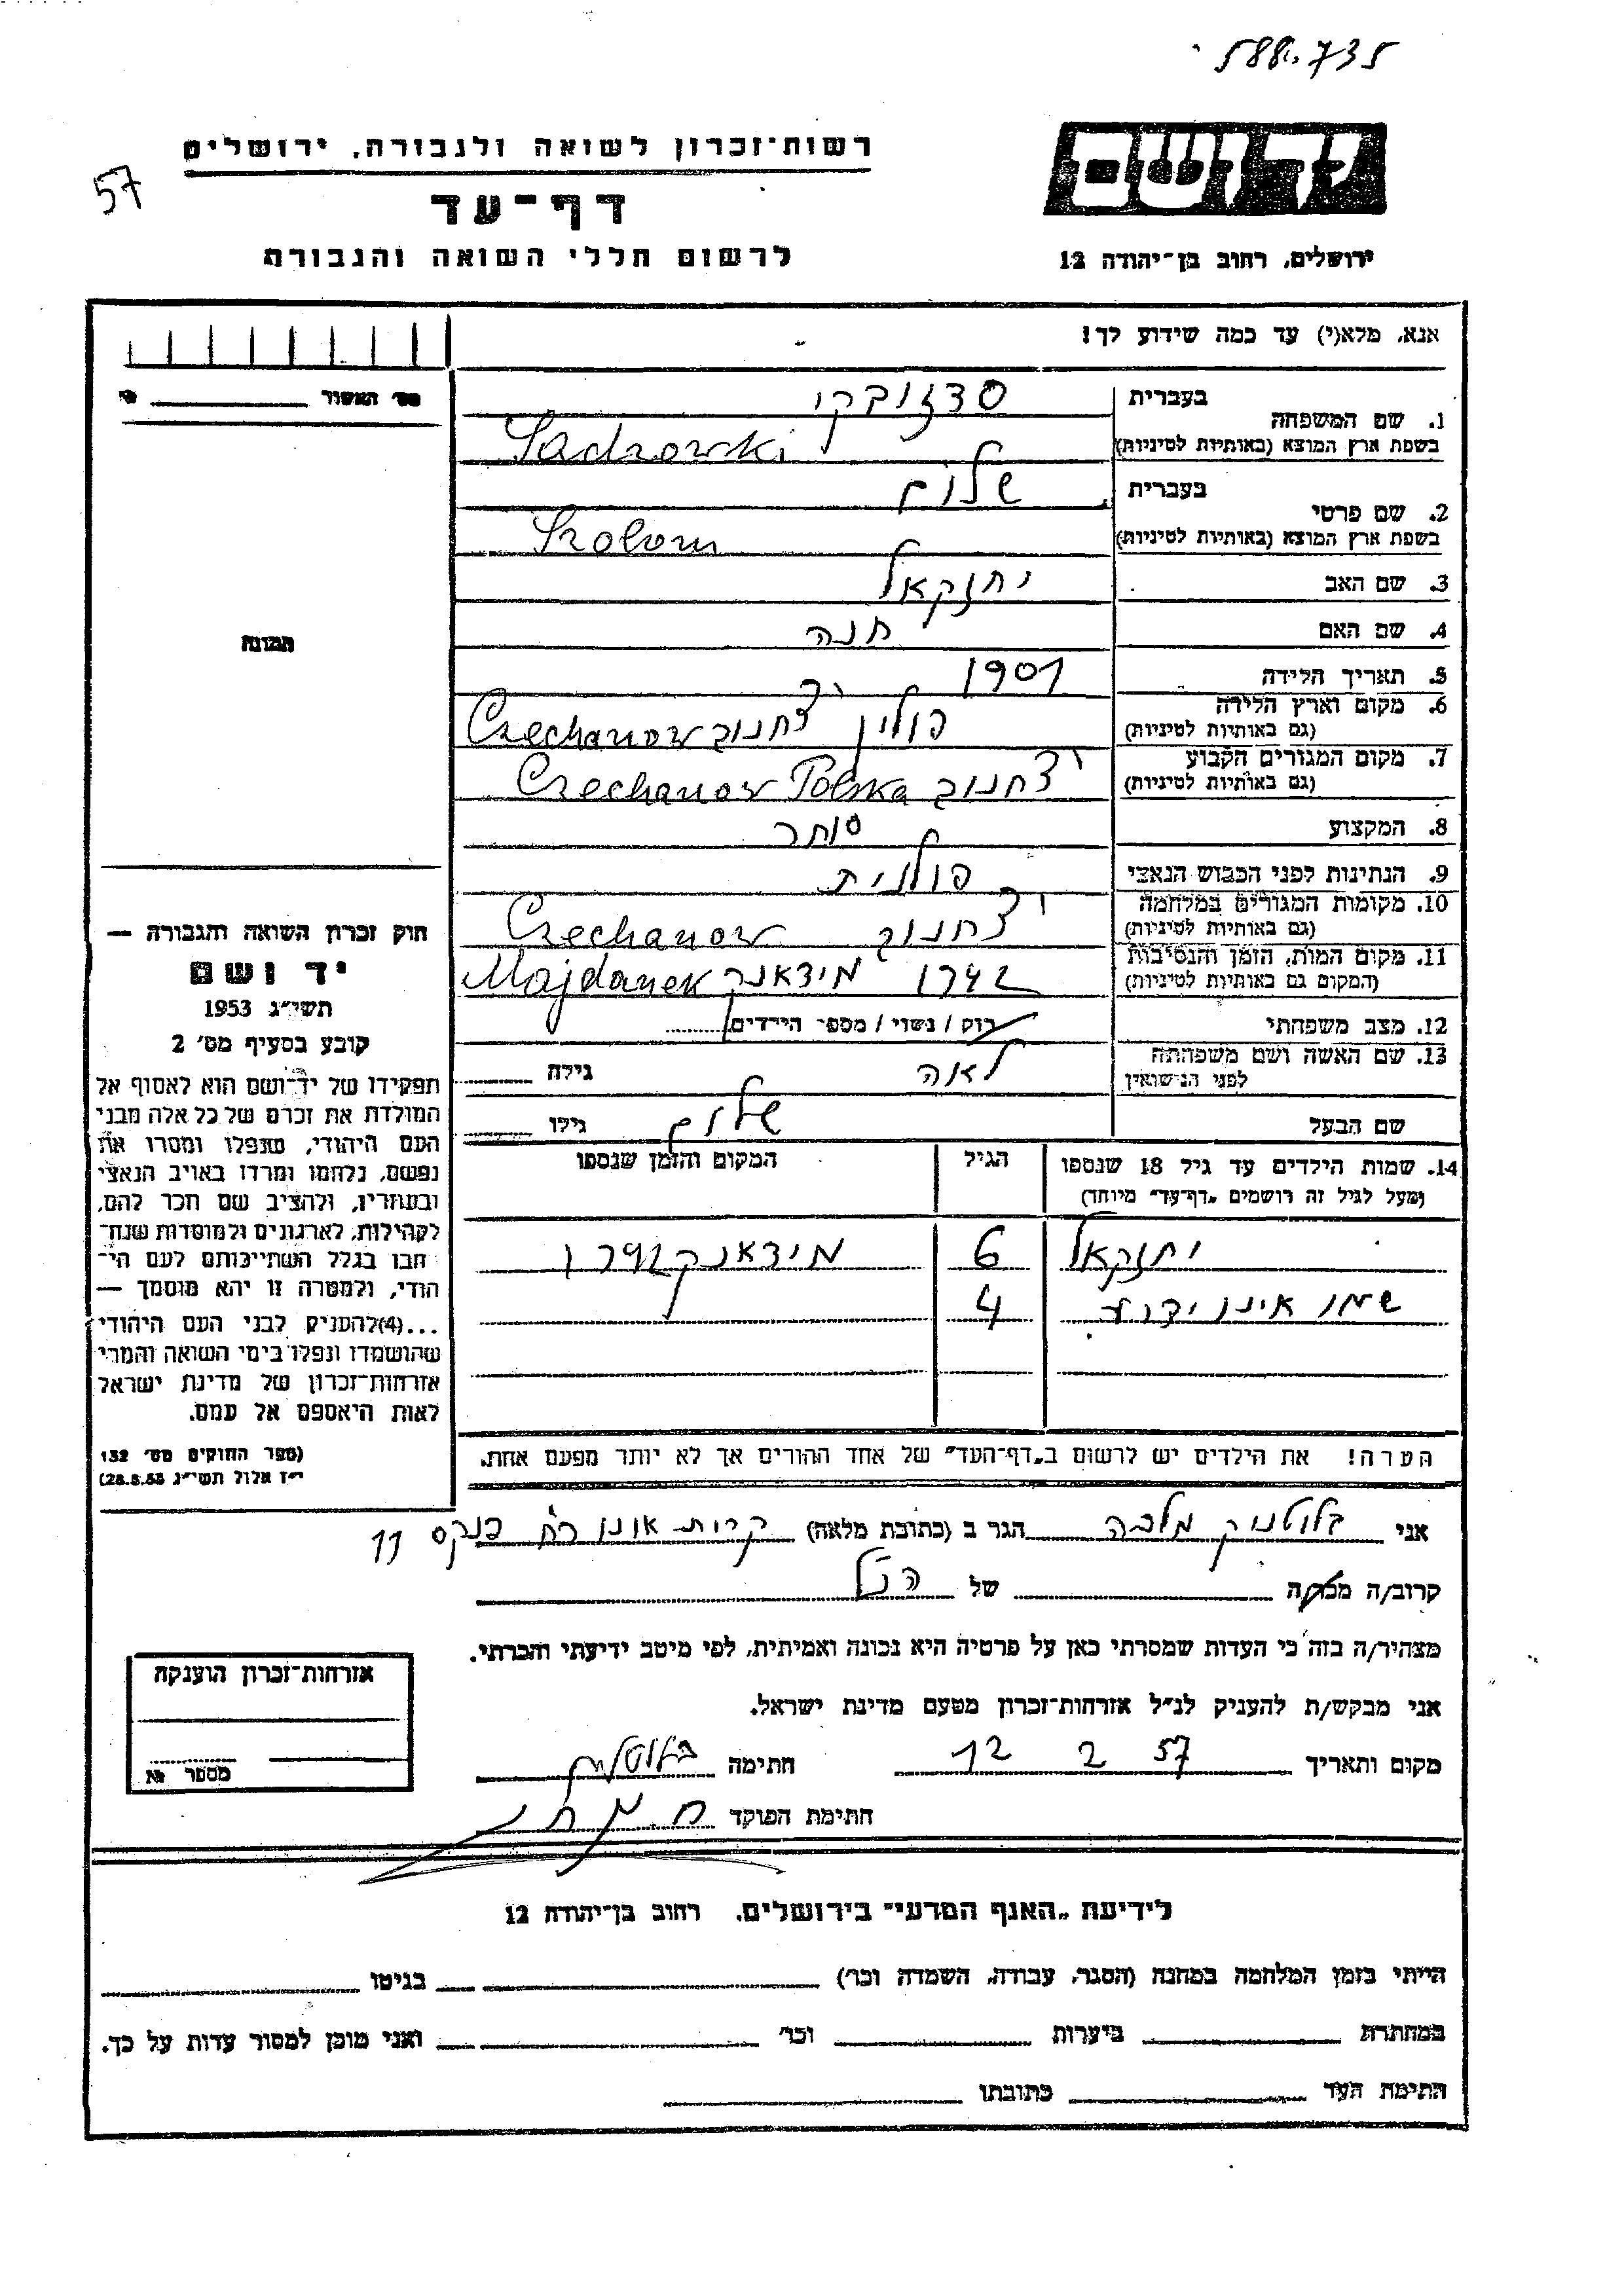 588.735
57
יד ושם
רשות־זכרון לשואה ולגבורה, ירושלים
דף־עד
לרשום חללי השואה והגבורה
ירושלים, רחוב בן־יהודה 12
אנא, מלא(י) עד כמה שידוע לך!
מס׳ האשור
1. שם המשפחה
בעברית סדזובקי
בשפת ארץ המוצא (באותיות לטיניות) Sadzowski
2. שם פרטי
בעברית שלום
בשפת ארץ המוצא (באותיות לטיניות) Szolom
3. שם האב יחזקאל
4. שם האם חנה
5. תאריך הלידה 1901
6. מקום וארץ הלידה
(גם באותיות לטיניות) פולין צ׳חנוב Czechanow
7. מקום המגורים הקבוע
(גם באותיות לטיניות) צ׳חנוב Czechanow Polska
8. המקצוע סוחר
9. הנתינות לפני הכבוש הנאצי פולנית
10. מקומות המגורים במלחמה
(גם באותיות לטיניות) צ׳חנוב Czechanow
11. מקום המות, הזמן והנסיבות
(המקום גם באותיות לטיניות) 1942 מידאנק Majdanek
12. מצב משפחתי רווק / נשוי / מספר הילדים
13. שם האשה ושם משפחתה
לפני הנישואין לאה גילה
שם הבעל שלום גילו
14. שמות הילדים עד גיל 18 שנספו
(מעל לגיל זה רושמים „דף־עד״ מיוחד)
הגיל
המקום והזמן שנספו
יחזקאל 6 מידאנק 1942
שמו אינו ידוע 4
הערה! את הילדים יש לרשום ב„דף־העד״ של אחד ההורים אך לא יותר מפעם אחת.
תמונה
חוק זכרון השואה והגבורה —
יד ושם
תשי״ג 1953
קובע בסעיף מס׳ 2
תפקידו של יד־ושם הוא לאסוף אל
המולדת את זכרם של כל אלה מבני
העם היהודי, שנפלו ומסרו את
נפשם, נלחמו ומרדו באויב הנאצי
ובעוזריו, ולהציב שם וזכר להם,
לקהילות, לארגונים ולמוסדות שנח־
רבו בגלל השתייכותם לעם הי־
הודי, ולמטרה זו יהא מוסמך —
...(4) להעניק לבני העם היהודי
שהושמדו ונפלו בימי השואה והמרי
אזרחות־זכרון של מדינת ישראל
לאות היאספם אל עמם.
(ספר החוקים מס׳ 132
י״ז אלול תשי״ג 28.8.53)
אני בלוטניק מלכה הגר ב (כתובת מלאה) קרית אונו רח׳ פנקס 11
קרוב/ה מכר/ה של הנ״ל
מצהיר/ה בזה כי העדות שמסרתי כאן על פרטיה היא נכונה ואמיתית, לפי מיטב ידיעתי והכרתי.
אני מבקש/ת להעניק לנ״ל אזרחות־זכרון מטעם מדינת ישראל.
מקום ותאריך 12 2 57 חתימה
חתימת הפוקד
אזרחות־זכרון הוענקה
מספר №
לידיעת „האגף המדעי״ בירושלים, רחוב בן־יהודה 12
הייתי בזמן המלחמה במחנה (הסגר, עבודה, השמדה וכו׳) בגיטו
במחתרת ביערות וכו׳ ואני מוכן למסור עדות על כך.
חתימת העד כתובתו